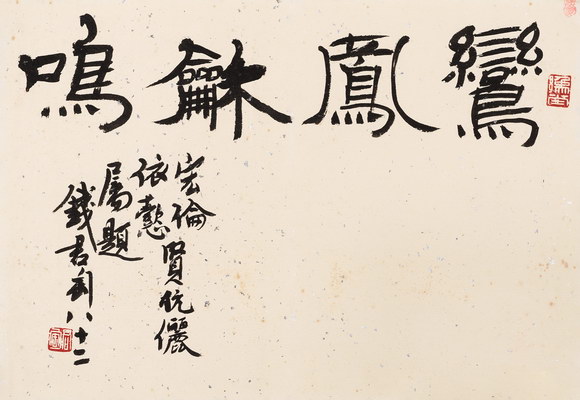 鸞鳳龢鳴
宏倫賢伉儷
依懿
屬題
錢君匋八十二